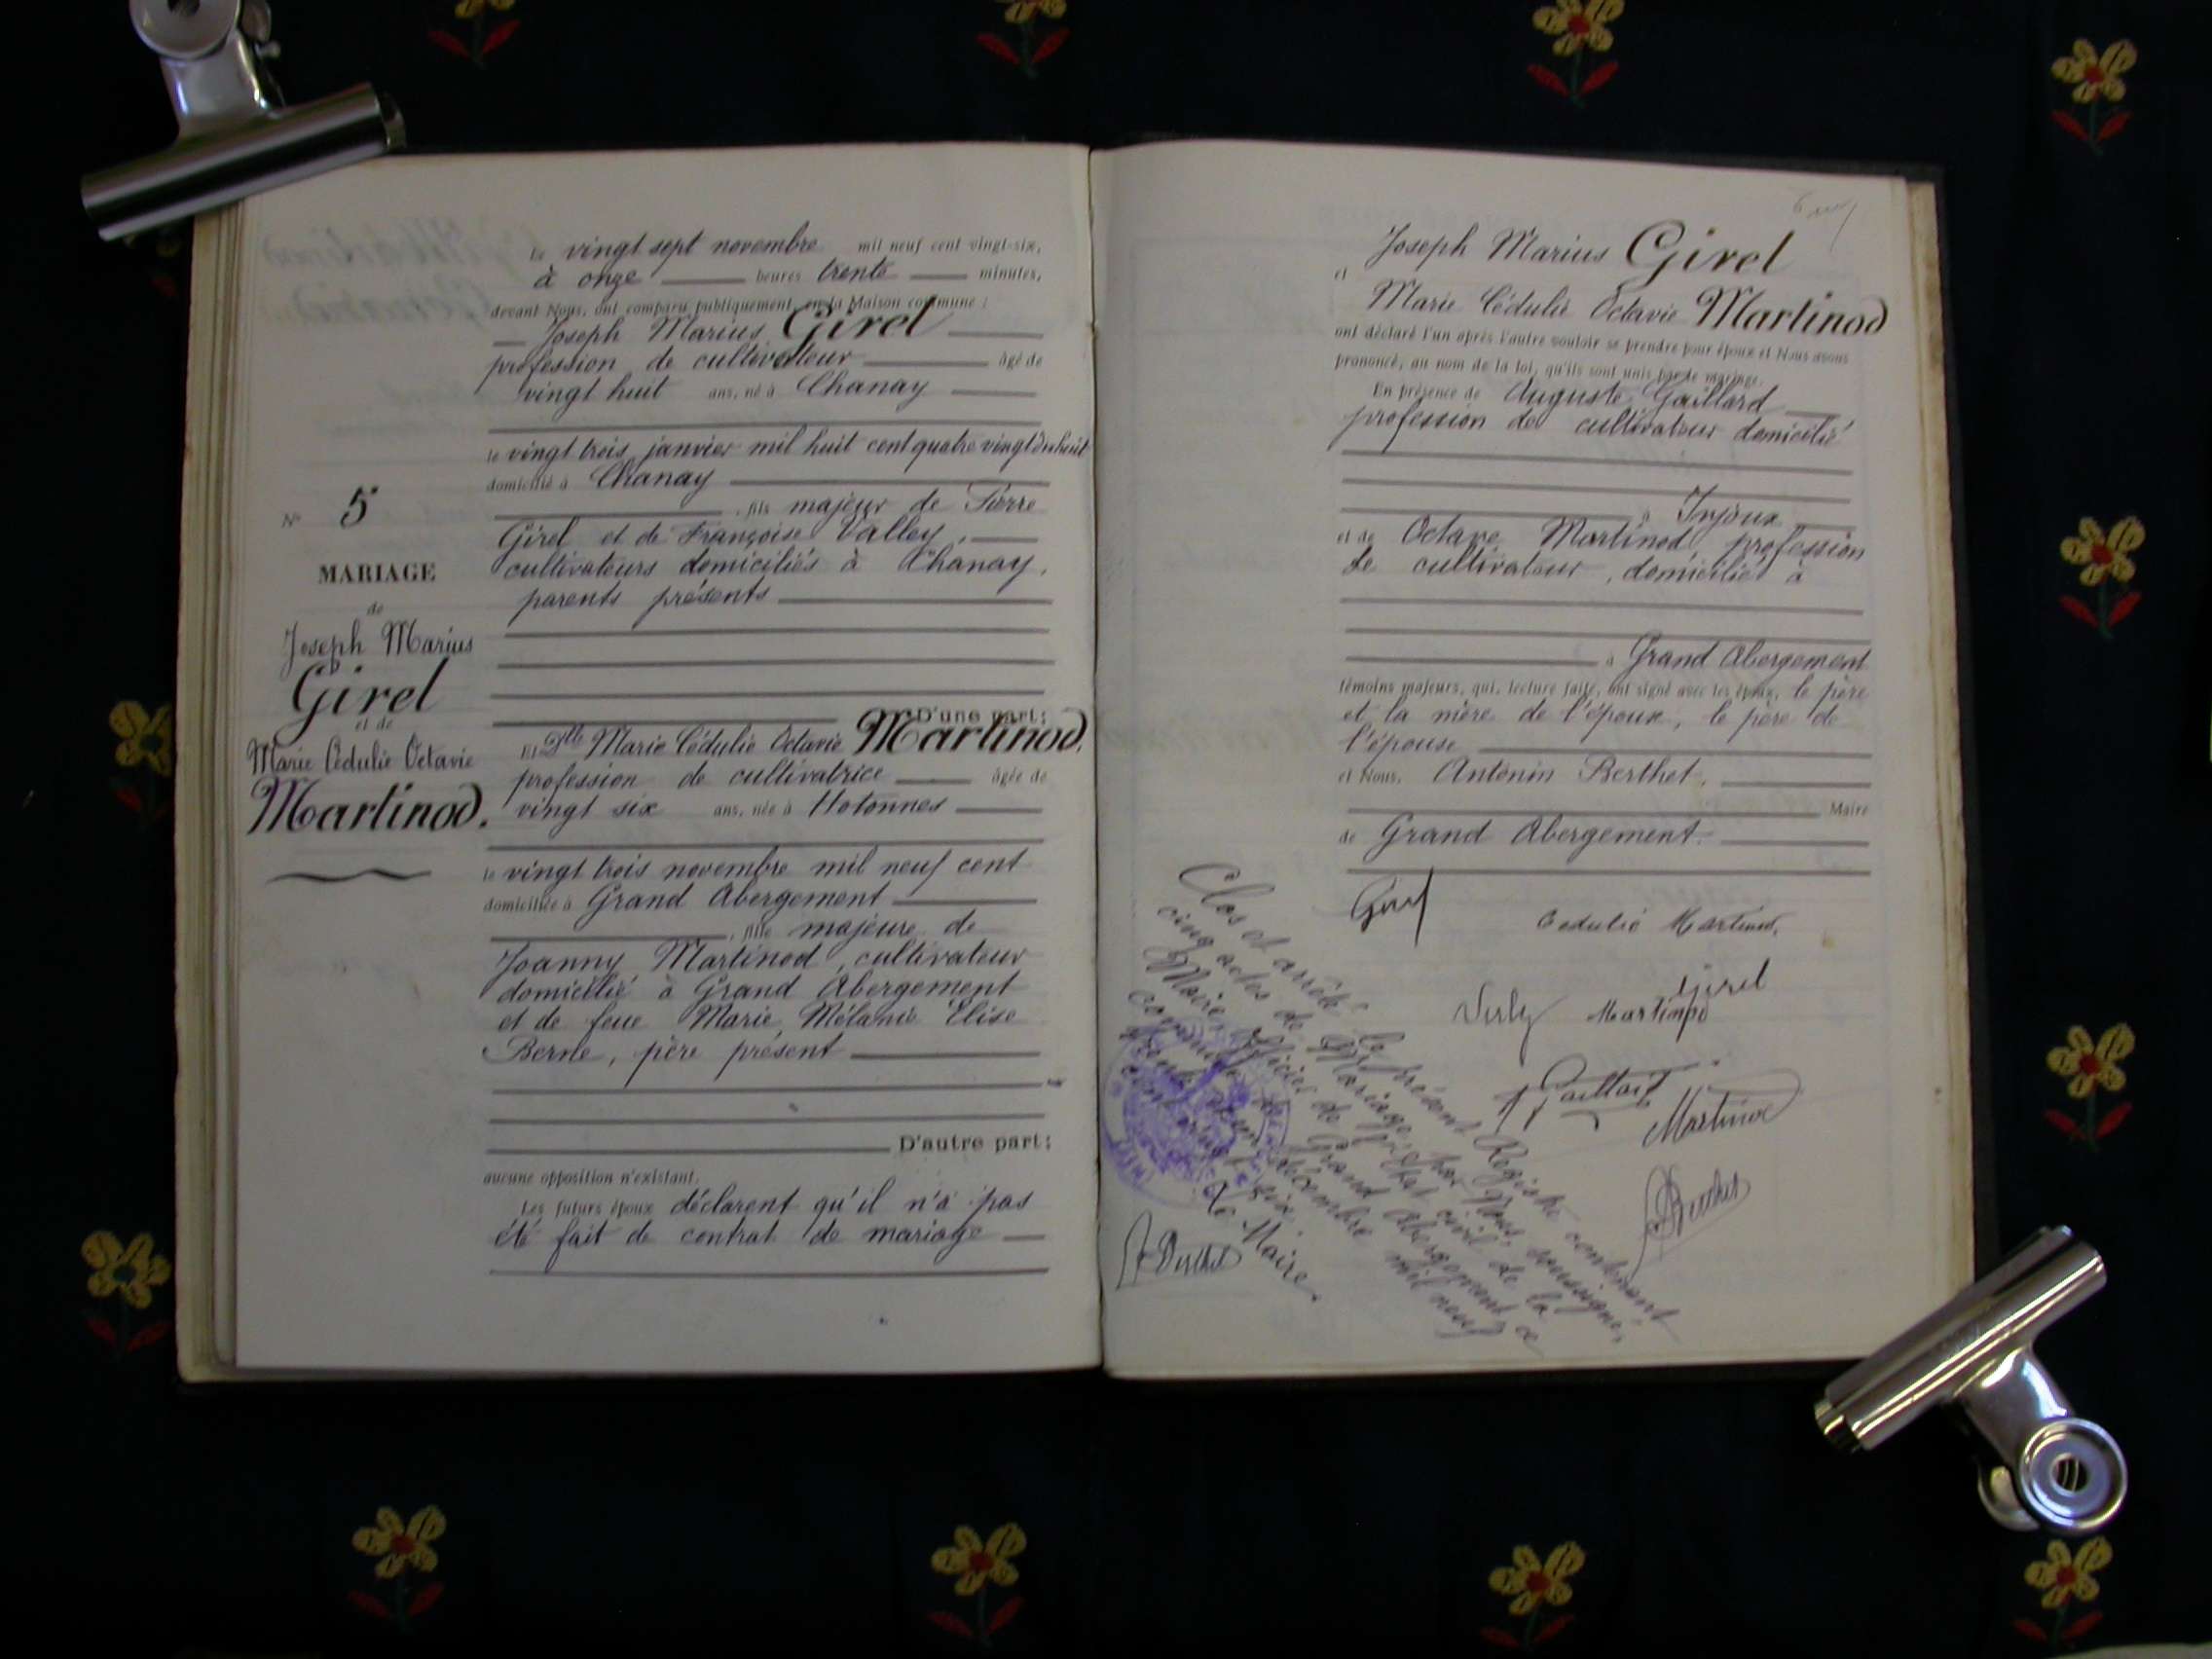 Le vingt sept novembre mil neuf cent vingt-six,
à onze heures trente minutes,
devant Nous, ont comparu publiquement, en la Maison commune :
Joseph Marius Girel
profession de cultivateur âgé de
vingt huit ans, né à Chanay
le vingt trois janvier mil huit cent quatre vingt dix huit
domicilié à Chanay
, fils majeur de Pierre
Girel et de Françoise Valley,
cultivateurs domiciliés à Chanay,
parents présents
D'une part;
Et Dlle Marie Cédulie Octavie Martinod,
profession de cultivatrice âgée de
vingt six ans, née à Hotonnes
le vingt trois novembre mil neuf cent
domiciliée à Grand Abergement
, fille majeure de
Joanny Martinod, cultivateur
domicilié à Grand Abergement
et de feue Marie, Mélanie Elise
Berne, père présent
D'autre part;
aucune opposition n'existant.
Les futurs époux déclarent qu'il n'a pas
été fait de contrat de mariage
N° 5
MARIAGE
de
Joseph Marius
Girel
et de
Marie Cédulie Octavie
Martinod.
Joseph Marius Girel
et
Marie Cédulie Octavie Martinod
ont déclaré l'un après l'autre vouloir se prendre pour époux et Nous avons
prononcé, au nom de la loi, qu'ils sont unis par le mariage.
En présence de Auguste Gaillard
profession de cultivateur domicilié
à Injoux
et de Octave Martinod profession
de cultivateur, domicilié à
à Grand Abergement
témoins majeurs, qui, lecture faite, ont signé avec les époux, le père
et la mère de l'époux, le père de
l'épouse
et Nous, Antonin Berthet,
Maire
de Grand Abergement.
Girel
Cedulie Martinod,
Girel
Martinod
Gaillard
Martinod
Berthet
Clos et arrêté le présent Registre contenant
cinq actes de Mariage, par Nous, soussigné,
Maire, officier de l'état civil de la
commune de Grand Abergement, ce
trente et un décembre mil neuf
cent vingt six.
Le Maire,
Berthet